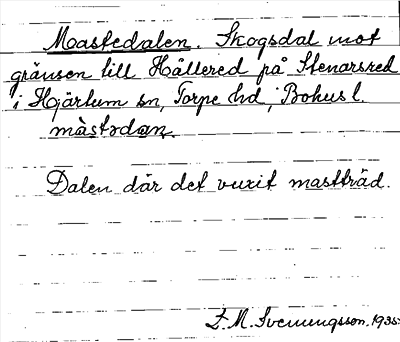 Mastedalen. Skogsdal mot
gränsen till Hällered på Stenarsred
i Hjärtum sn, Torpe hd, Bohusl.
màstədan.
Dalen där det vuxit mastträd.
F. M. Svenungsson. 1935.